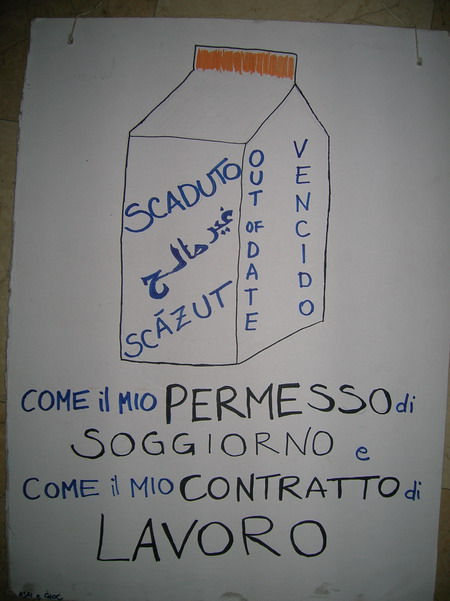 SCADUTO
غير صالح
SCĂZUT
OUT OF DATE
VENCIDO
COME il MIO PERMESSO di
SOGGIORNO e
COME il MIO CONTRATTO di
LAVORO